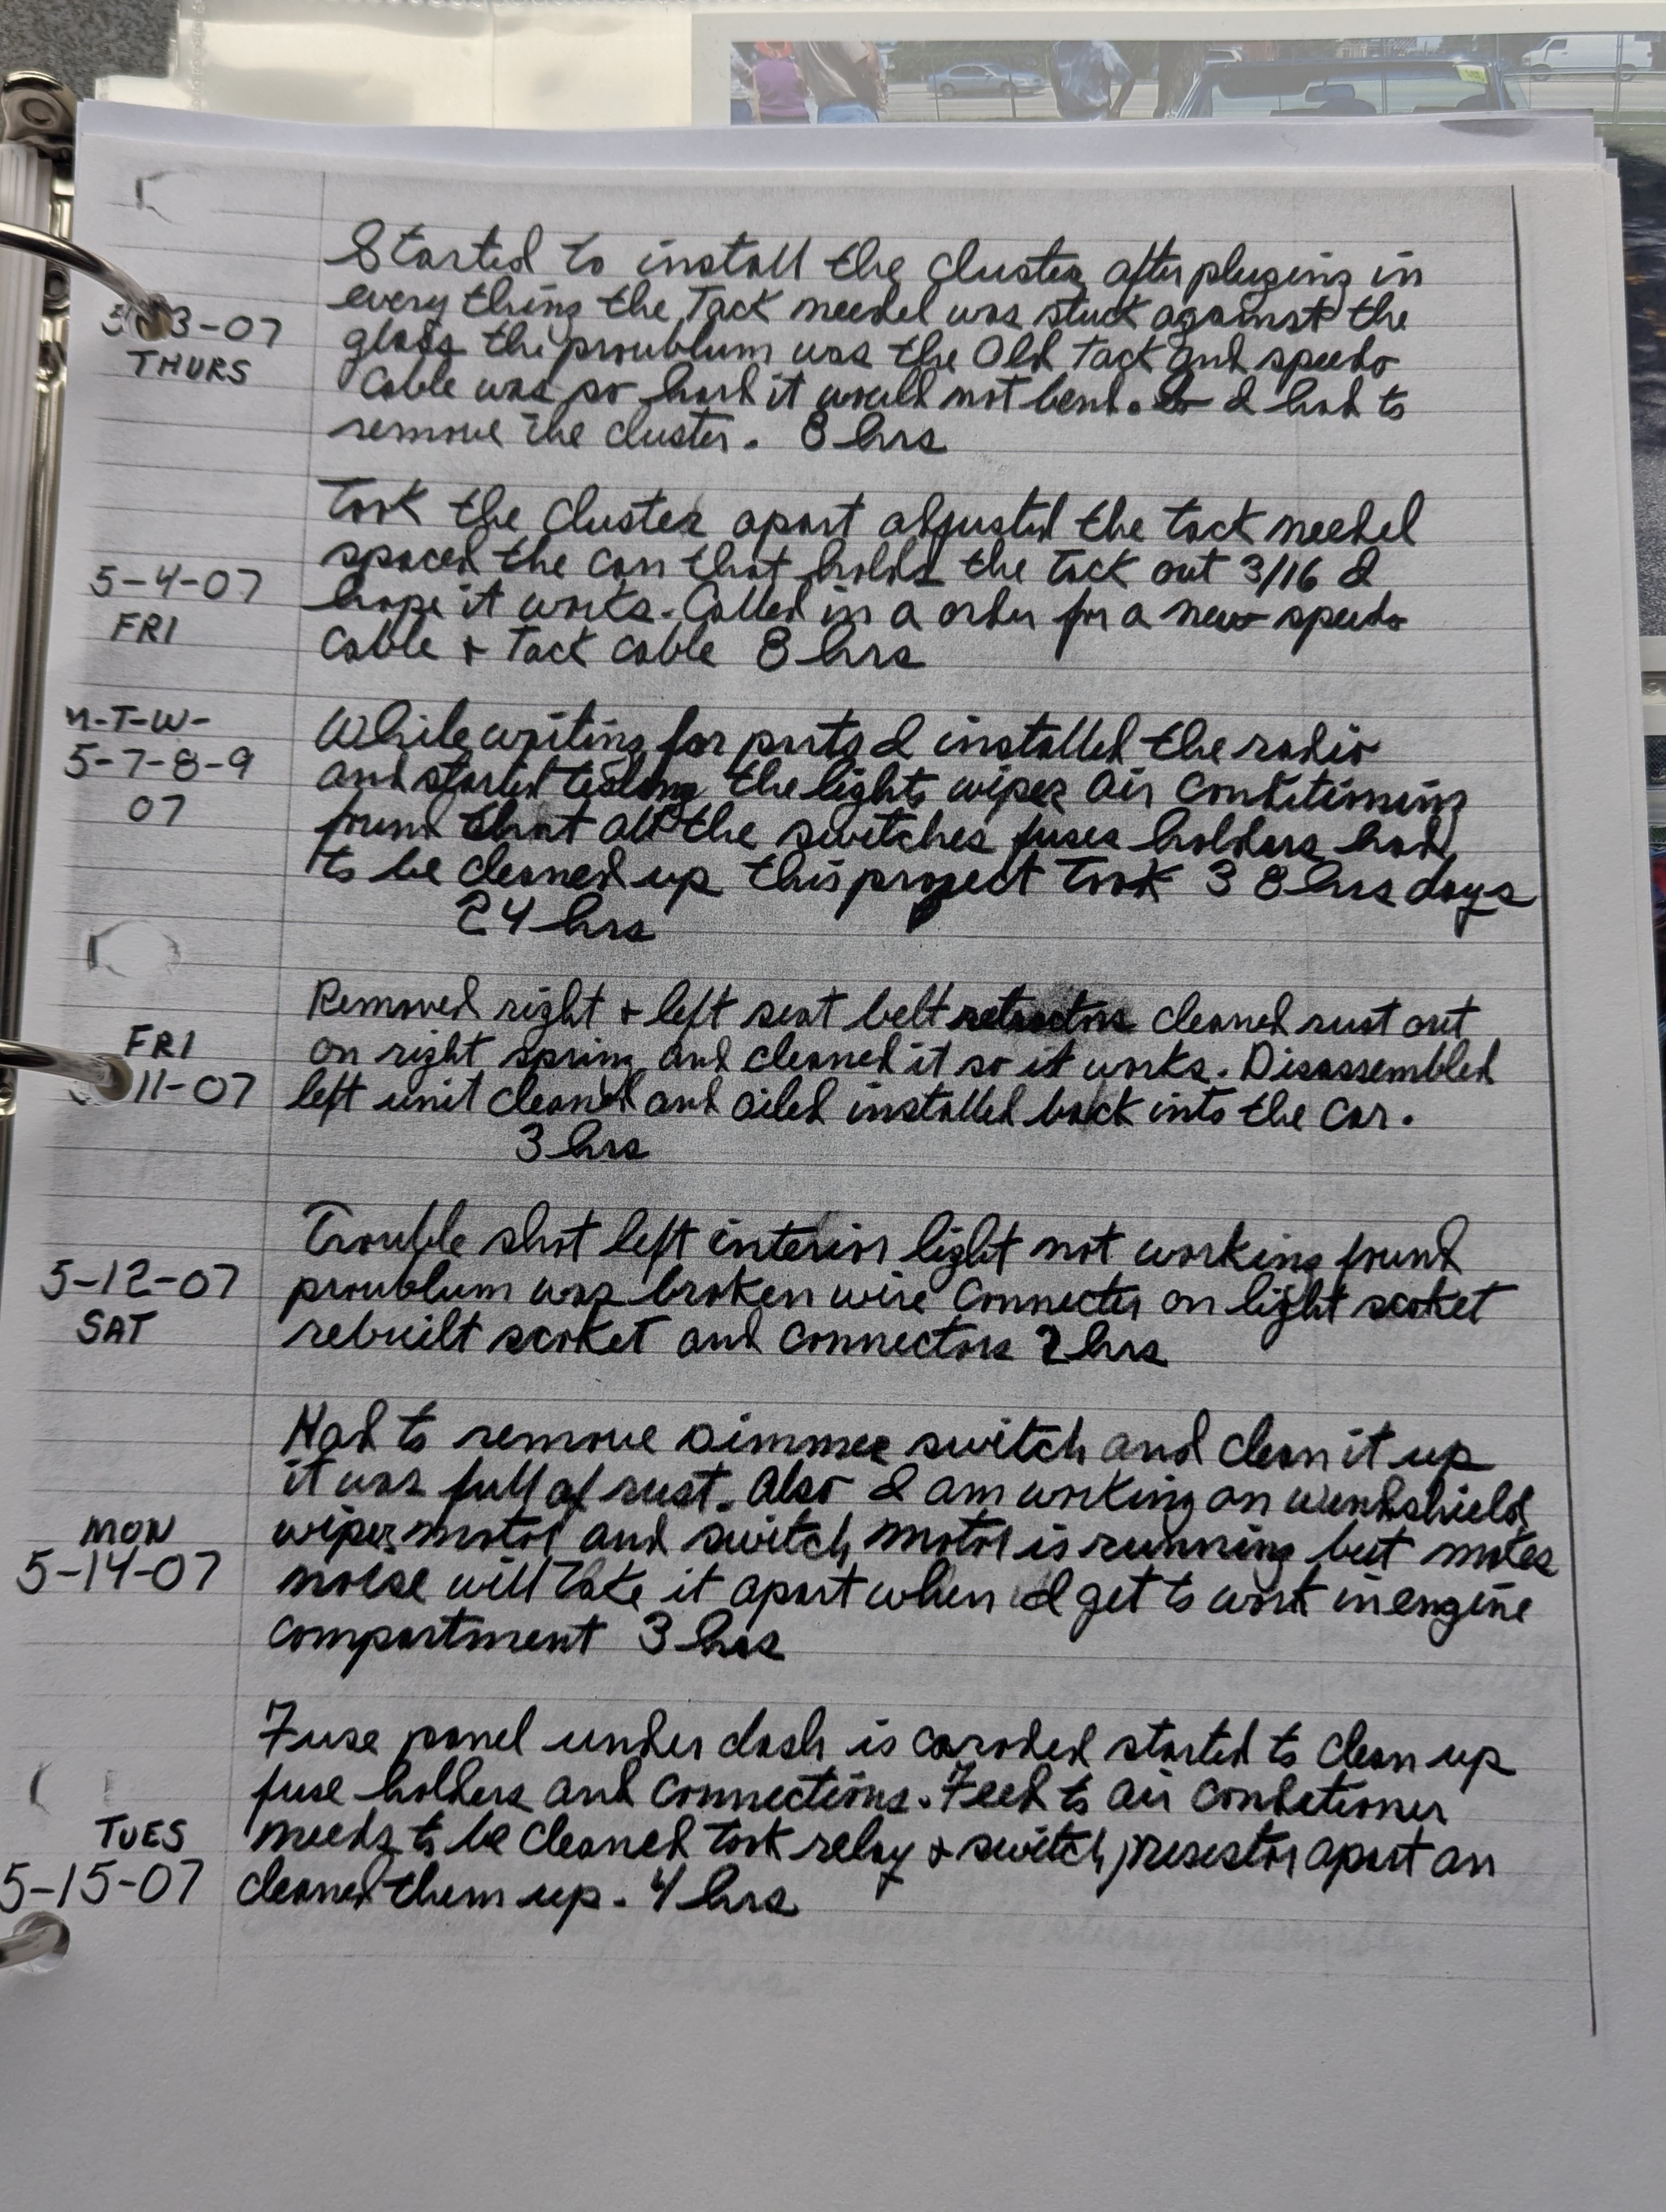 Started to install the cluster after pluging in
every thing the Tack needel was stuck against the
5-3-07
glass the proublum was the Old Tack and speedo
THURS
cable was so hard it would not bend. So I had to
remove the cluster. 8 hrs
Took the Cluster apart adjusted the tack needel
spaced the can that holds the tack out 3/16 I
5-4-07
hope it works. Called in a order for a new speedo
FRI
cable + Tack cable 8 hrs
M-T-W-
While writing for parts I installed the radio
5-7-8-9
and started testing the lights wiper air conditioning
07
found that all the switches fuses holders had
to be cleaned up this project took 3 8 hrs days
24 hrs
Removed right + left seat belt retractors cleaned rust out
FRI
on right spring and cleaned it so it works. Disassembled
11-07
left unit cleaned and oiled installed back into the car.
3 hrs
Trouble shot left interior light not working found
5-12-07
proublum was broken wire connecter on light scoket
SAT
rebuilt scoket and connectors 2 hrs
Had to remove dimmer switch and clean it up
it was full of rust. Also I am working on windshield
MON
wiper motor and switch motor is running but makes
5-14-07
noise will take it apart when I get to work in engine
compartment 3 hrs
Fuse panel under dash is caroded started to clean up
fuse holders and connections. Feed to air conditioner
TUES
needs to be cleaned took relay + switch, resestor apart an
5-15-07
cleaned them up. 4 hrs